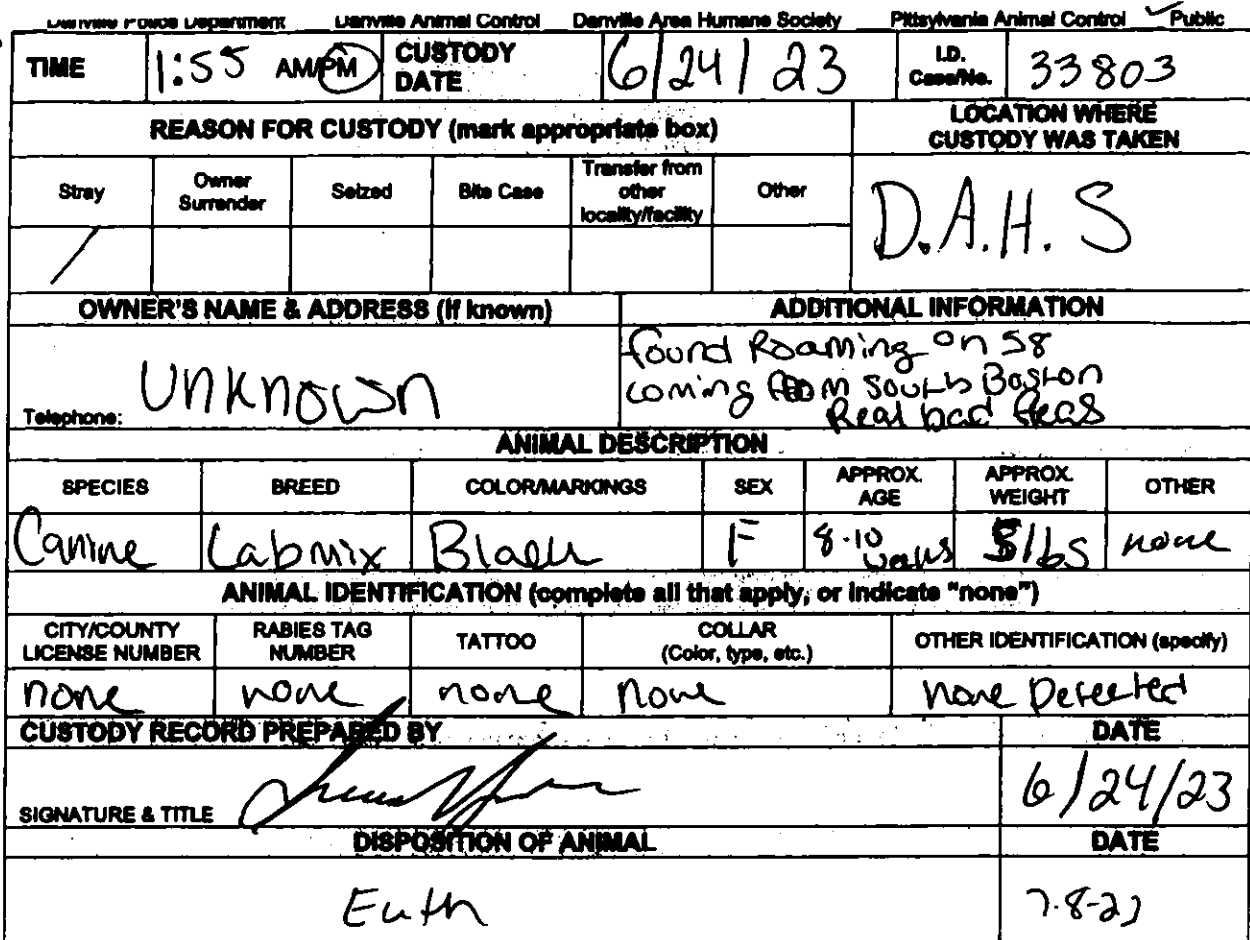 Danville Police Department Danville Animal Control Danville Area Humane Society Pittsylvania Animal Control ✓ Public
TIME 1:55 AM/PM CUSTODY DATE 6/24/23 I.D. Case/No. 33803
REASON FOR CUSTODY (mark appropriate box) LOCATION WHERE CUSTODY WAS TAKEN
Stray Owner Surrender Seized Bite Case Transfer from other locality/facility Other
/ D.A.H.S
OWNER'S NAME & ADDRESS (if known) ADDITIONAL INFORMATION
Unknown
Telephone:
found Roaming on 58
coming from South Boston
Real bad fleas
ANIMAL DESCRIPTION
SPECIES BREED COLOR/MARKINGS SEX APPROX. AGE APPROX. WEIGHT OTHER
Canine Labmix Black F 8-10 weeks 5lbs none
ANIMAL IDENTIFICATION (complete all that apply, or indicate "none")
CITY/COUNTY LICENSE NUMBER RABIES TAG NUMBER TATTOO COLLAR (Color, type, etc.) OTHER IDENTIFICATION (specify)
none none none none none Detected
CUSTODY RECORD PREPARED BY DATE
SIGNATURE & TITLE 6/24/23
DISPOSITION OF ANIMAL DATE
Euth 7-8-23